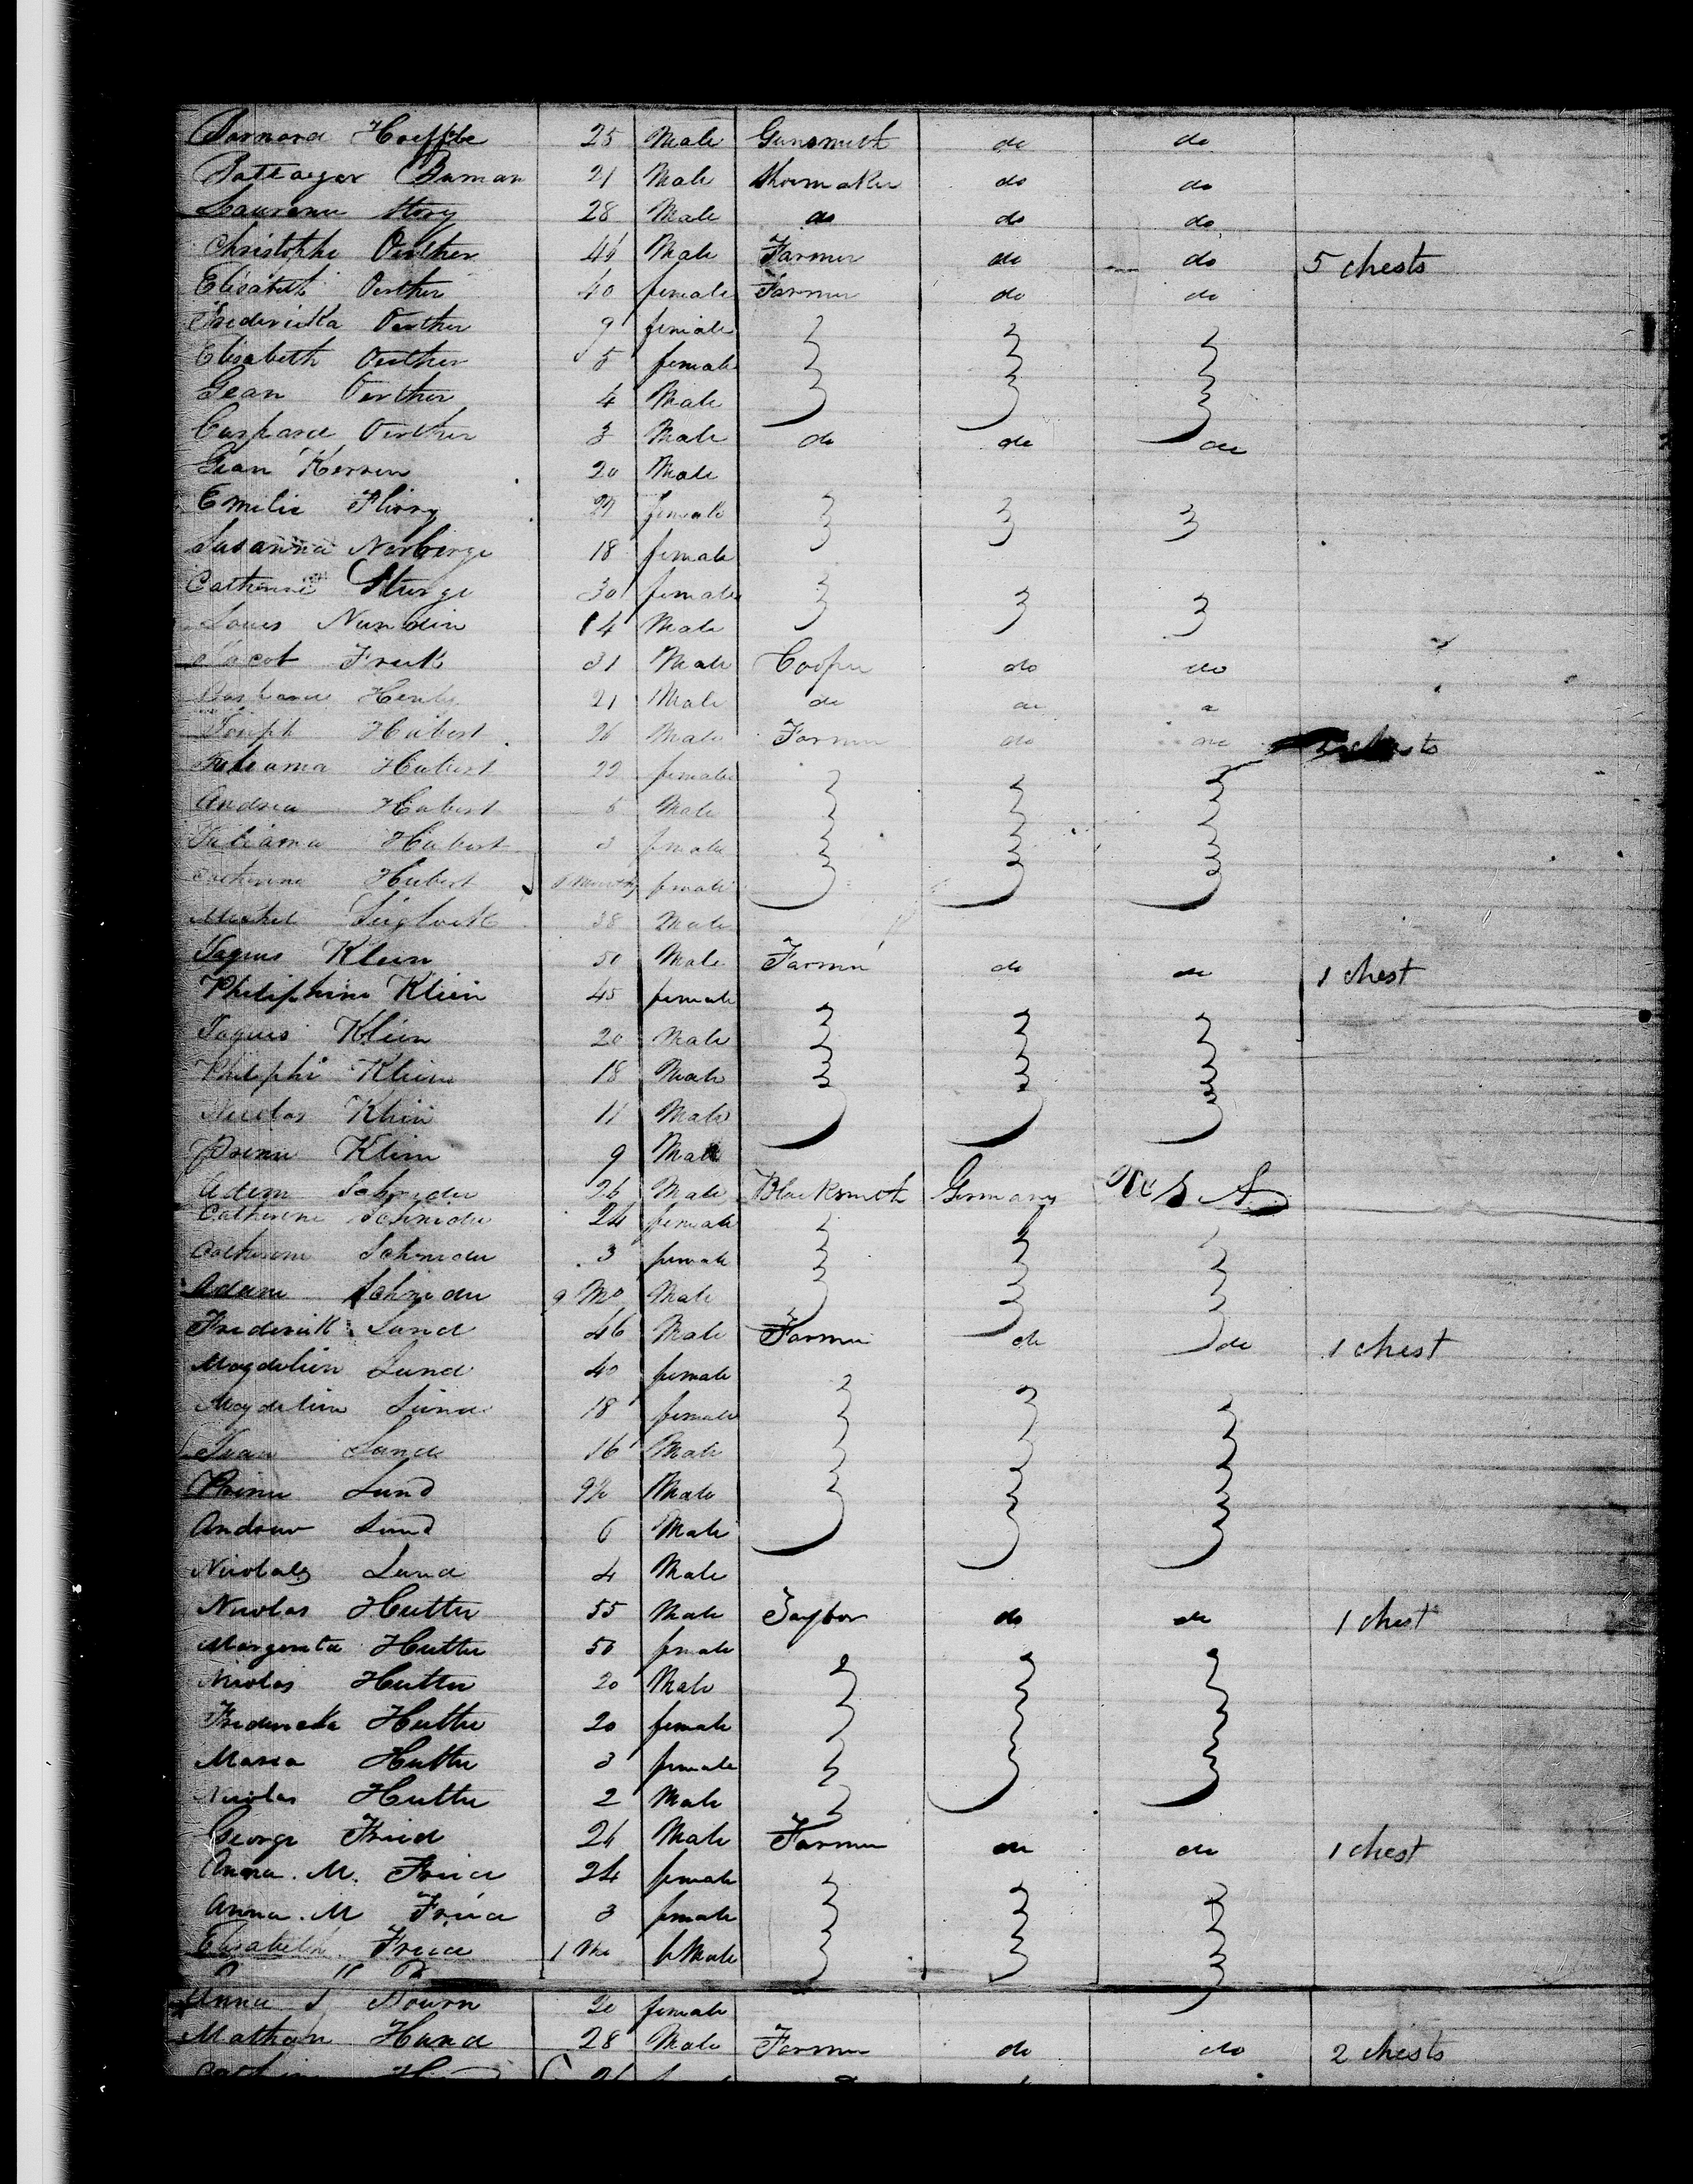 Barnard Hoeffke 25 Male Gunsmith do do
Baltazar Baman 21 Male Shoemaker do do
Laurence Story 28 Male do do do
Christophe Oerther 46 Male Farmer do do 5 chests
Elisabeth Oerther 40 female Farmer do do
Fredericka Oerther 9 female
Elisabeth Oerther 5 female
Gean Oerther 4 Male
Caspard Oerther 3 Male do do do
Gean Kerren 20 Male
Emelie Flirry 27 female
Susanna Norbirge 18 female
Catherine Sturge 30 female
Louis Nundin 14 Male
Jacob Freck 31 Male Cooper do do
Henly 21 Male do do
Joseph Hubert 26 Male Farmer do do chests
Hubert 22 female
Andrea Hubert 5 Male
Hubert 3 female
Catherine Hubert 8 Months female
Michel 38 Male
Jaques Klein 50 Male Farmer do do 1 chest
Philiphine Klein 45 female
Jaques Klein 20 Male
Philiphe Klein 18 Male
Nicolas Klein 11 Male
Pierre Klein 9 Male
Adem Schnider 26 Male Blacksmith Germany U S A
Catherine Schnider 24 female
Catherine Schnider 3 female
Adam Schnider 9 Mo Male
Frederick Lund 46 Male Farmer do do 1 chest
Magdelien Lund 40 female
Magdeline Lund 18 female
Jean Lund 16 Male
Pierre Lund 9½ Male
Andrew Lund 6 Male
Nicolas Lund 4 Male
Nicolas Hutter 55 Male Taylor do do 1 chest
Margereta Hutter 50 female
Nicolas Hutter 20 Male
Fredericka Hutter 20 female
Maria Hutter 3 female
Nicolas Hutter 2 Male
George Fried 24 Male Farmer do do 1 chest
Anna. M. Fried 24 female
Anna. M Fried 3 female
Elisabeth Fried 1 Mo feMale
Anna Bourn 20 female
Mathan Hand 28 Male Farmer do do 2 chests